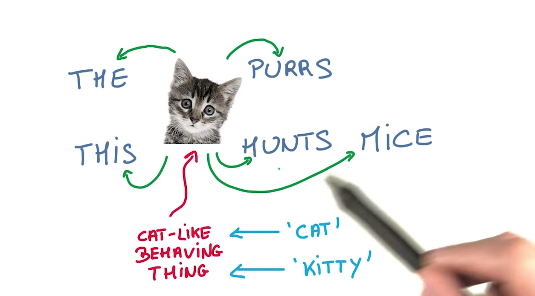 THE PURRS
THIS HUNTS MICE
CAT-LIKE
BEHAVING
THING
'CAT'
'KITTY'